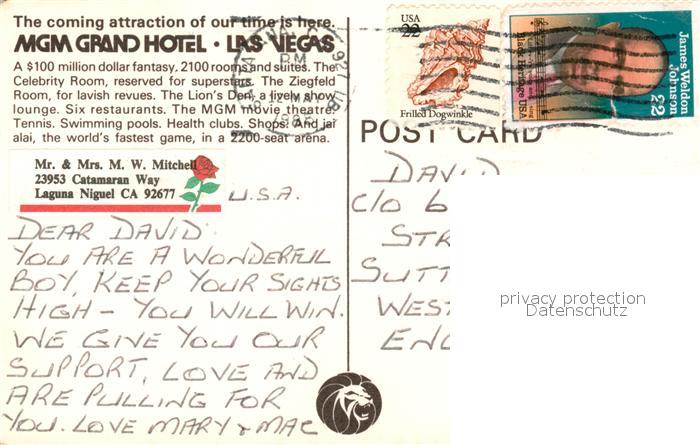 The coming attraction of our time is here.
MGM GRAND HOTEL • LAS VEGAS
A $100 million dollar fantasy. 2100 rooms and suites. The
Celebrity Room, reserved for superstars. The Ziegfeld
Room, for lavish revues. The Lion's Den, a lively show
lounge. Six restaurants. The MGM movie theatre.
Tennis. Swimming pools. Health clubs. Shops. And jai
alai, the world's fastest game, in a 2200-seat arena.
PM
Mr. & Mrs. M. W. Mitchell
23953 Catamaran Way
Laguna Niguel CA 92677
U.S.A.
DEAR DAVID.
YOU ARE A WONDERFUL
BOY, KEEP YOUR SIGHTS
HIGH - YOU WILL WIN.
WE GIVE YOU OUR
SUPPORT, LOVE AND
ARE PULLING FOR
YOU. LOVE MARY & MAC
USA
22
Frilled Dogwinkle
James Weldon
Johnson
22
Black Heritage USA
POST CARD
DAVID
C/O 6
STR
SUTT
WEST
ENG
privacy protection
Datenschutz